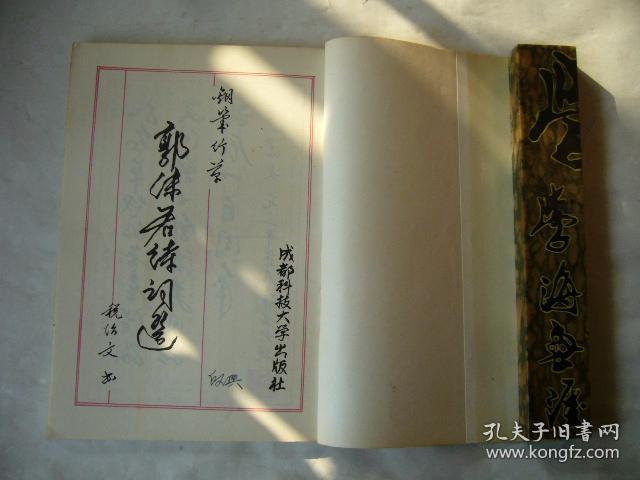 钢笔行草
郭沫若诗词选
税治文书
成都科技大学出版社
学海无涯
孔夫子旧书网
www.kongfz.com